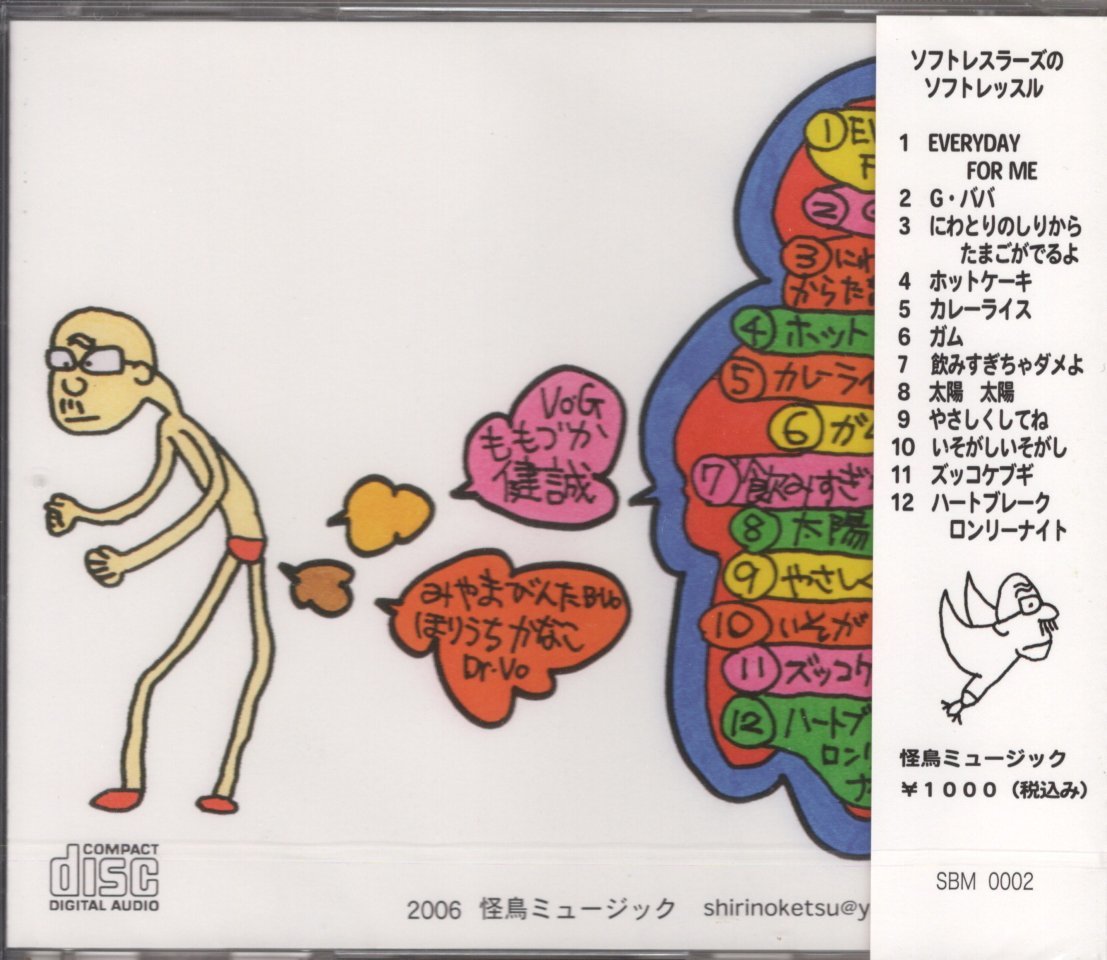 VoG
ももづか
健誠
みやまびんた B・Vo
ほりうち かなこ
Dr・Vo
1
2
3 にわ
からた
4 ホット
5 カレーライ
6 ガ
7 飲みすぎ
8 太陽
9 やさしく
10 いそが
11 ズッコケ
12 ハートブ
ロン
COMPACT
disc
DIGITAL AUDIO
2006 怪鳥ミュージック shirinoketsu@y
ソフトレスラーズの
ソフトレッスル
1 EVERYDAY
FOR ME
2 G・ババ
3 にわとりのしりから
たまごがでるよ
4 ホットケーキ
5 カレーライス
6 ガム
7 飲みすぎちゃダメよ
8 太陽 太陽
9 やさしくしてね
10 いそがしいそがし
11 ズッコケブギ
12 ハートブレーク
ロンリーナイト
怪鳥ミュージック
¥1000(税込み)
SBM 0002